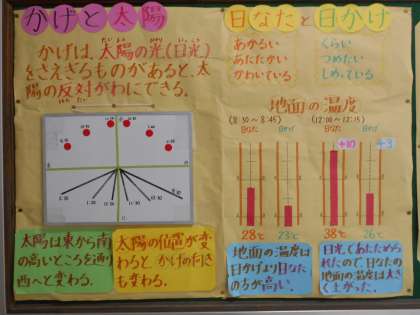 かげと太陽
かげは、太陽の光(日光)
をさえぎるものがあると、太
陽の反対がわにできる。
太陽は東から南
の高いところを通り
西へと変わる。
太陽の位置が変
わると、かげの向き
も変わる。
日なたと日かげ
あかるい
あたたかい
かわいている
くらい
つめたい
しめっている
地面の温度
(8:30~8:45)
(12:00~12:15)
日なた
日かげ
日なた
日かげ
+10
+3
28℃
23℃
38℃
26℃
地面の温度は
日かげより日なた
の方が高い。
日光であたためら
れたので、日なたの
地面の温度は大き
く上がった。